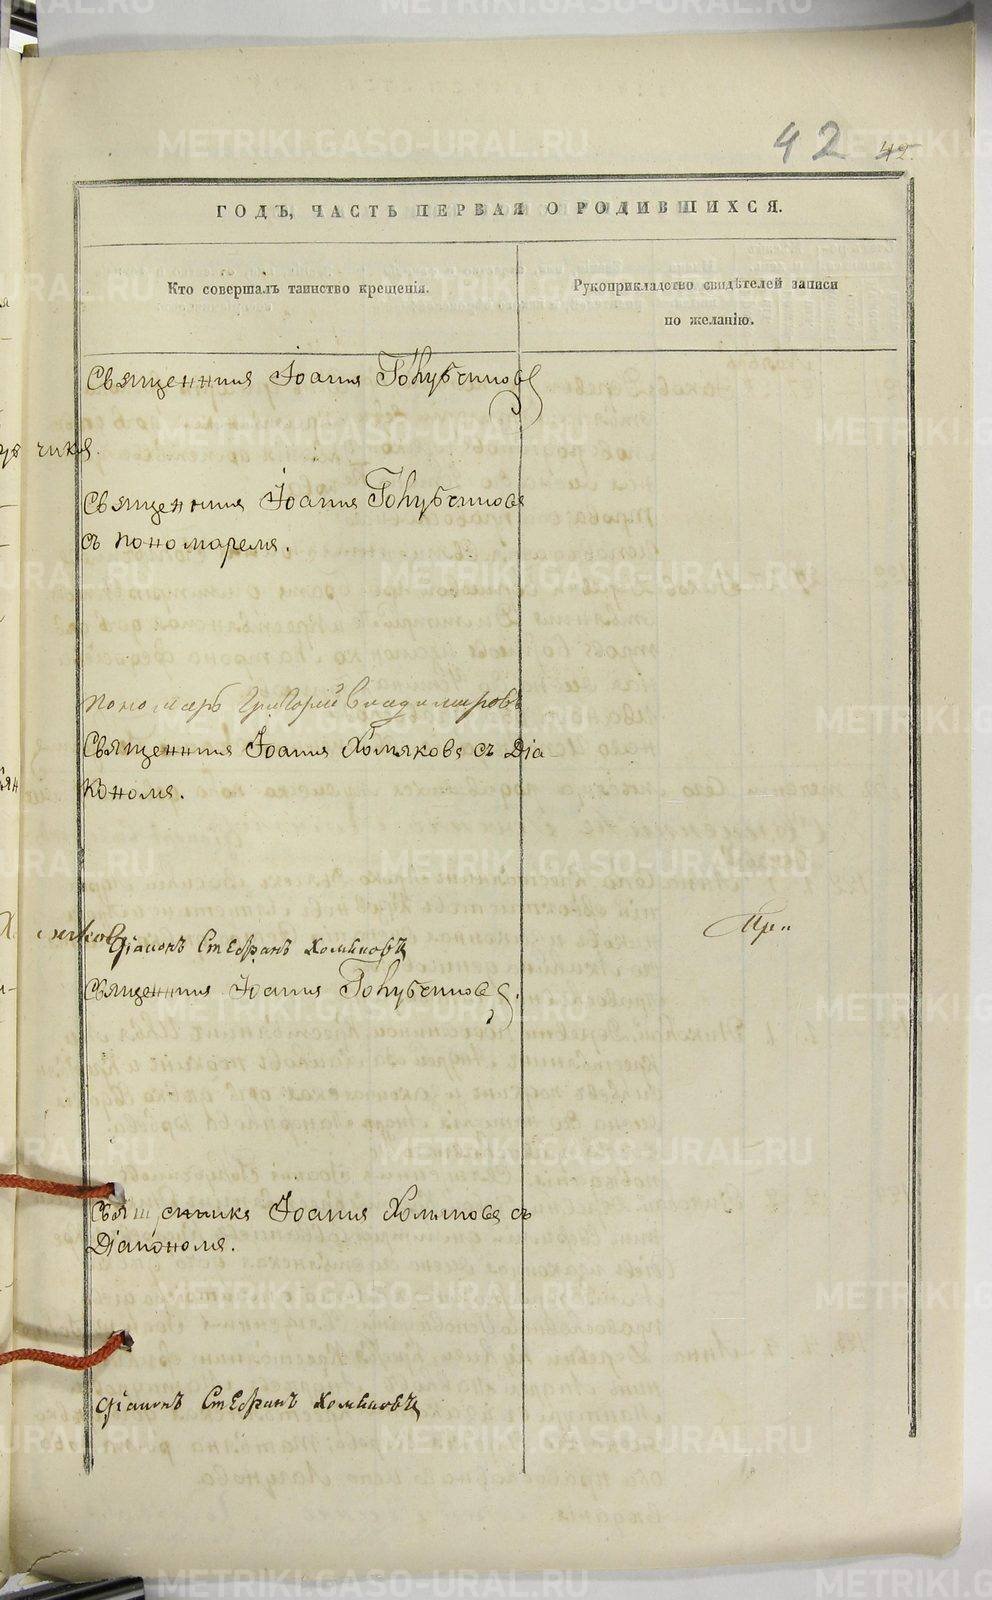 42 42.
ГОДЪ, ЧАСТЬ ПЕРВАЯ О РОДИВШИХСЯ.
Кто совершалъ таинство крещенія.
Рукоприкладство свидѣтелей записи
по желанію.
Священникъ Іоаннъ Голубчиковъ
чикъ.
Священникъ Іоаннъ Голубчиковъ
съ пономаремъ.
Пономарь Григорій Владимировъ
Священникъ Іоаннъ Хомяковъ съ Діа-
кономъ.
Діаконъ Стефанъ Хомяковъ
Священникъ Іоаннъ Голубчиковъ.
Священникъ Іоаннъ Хомяковъ съ
Діакономъ.
Діаконъ Стефанъ Хомяковъ
METRIKI.GASO-URAL.RU